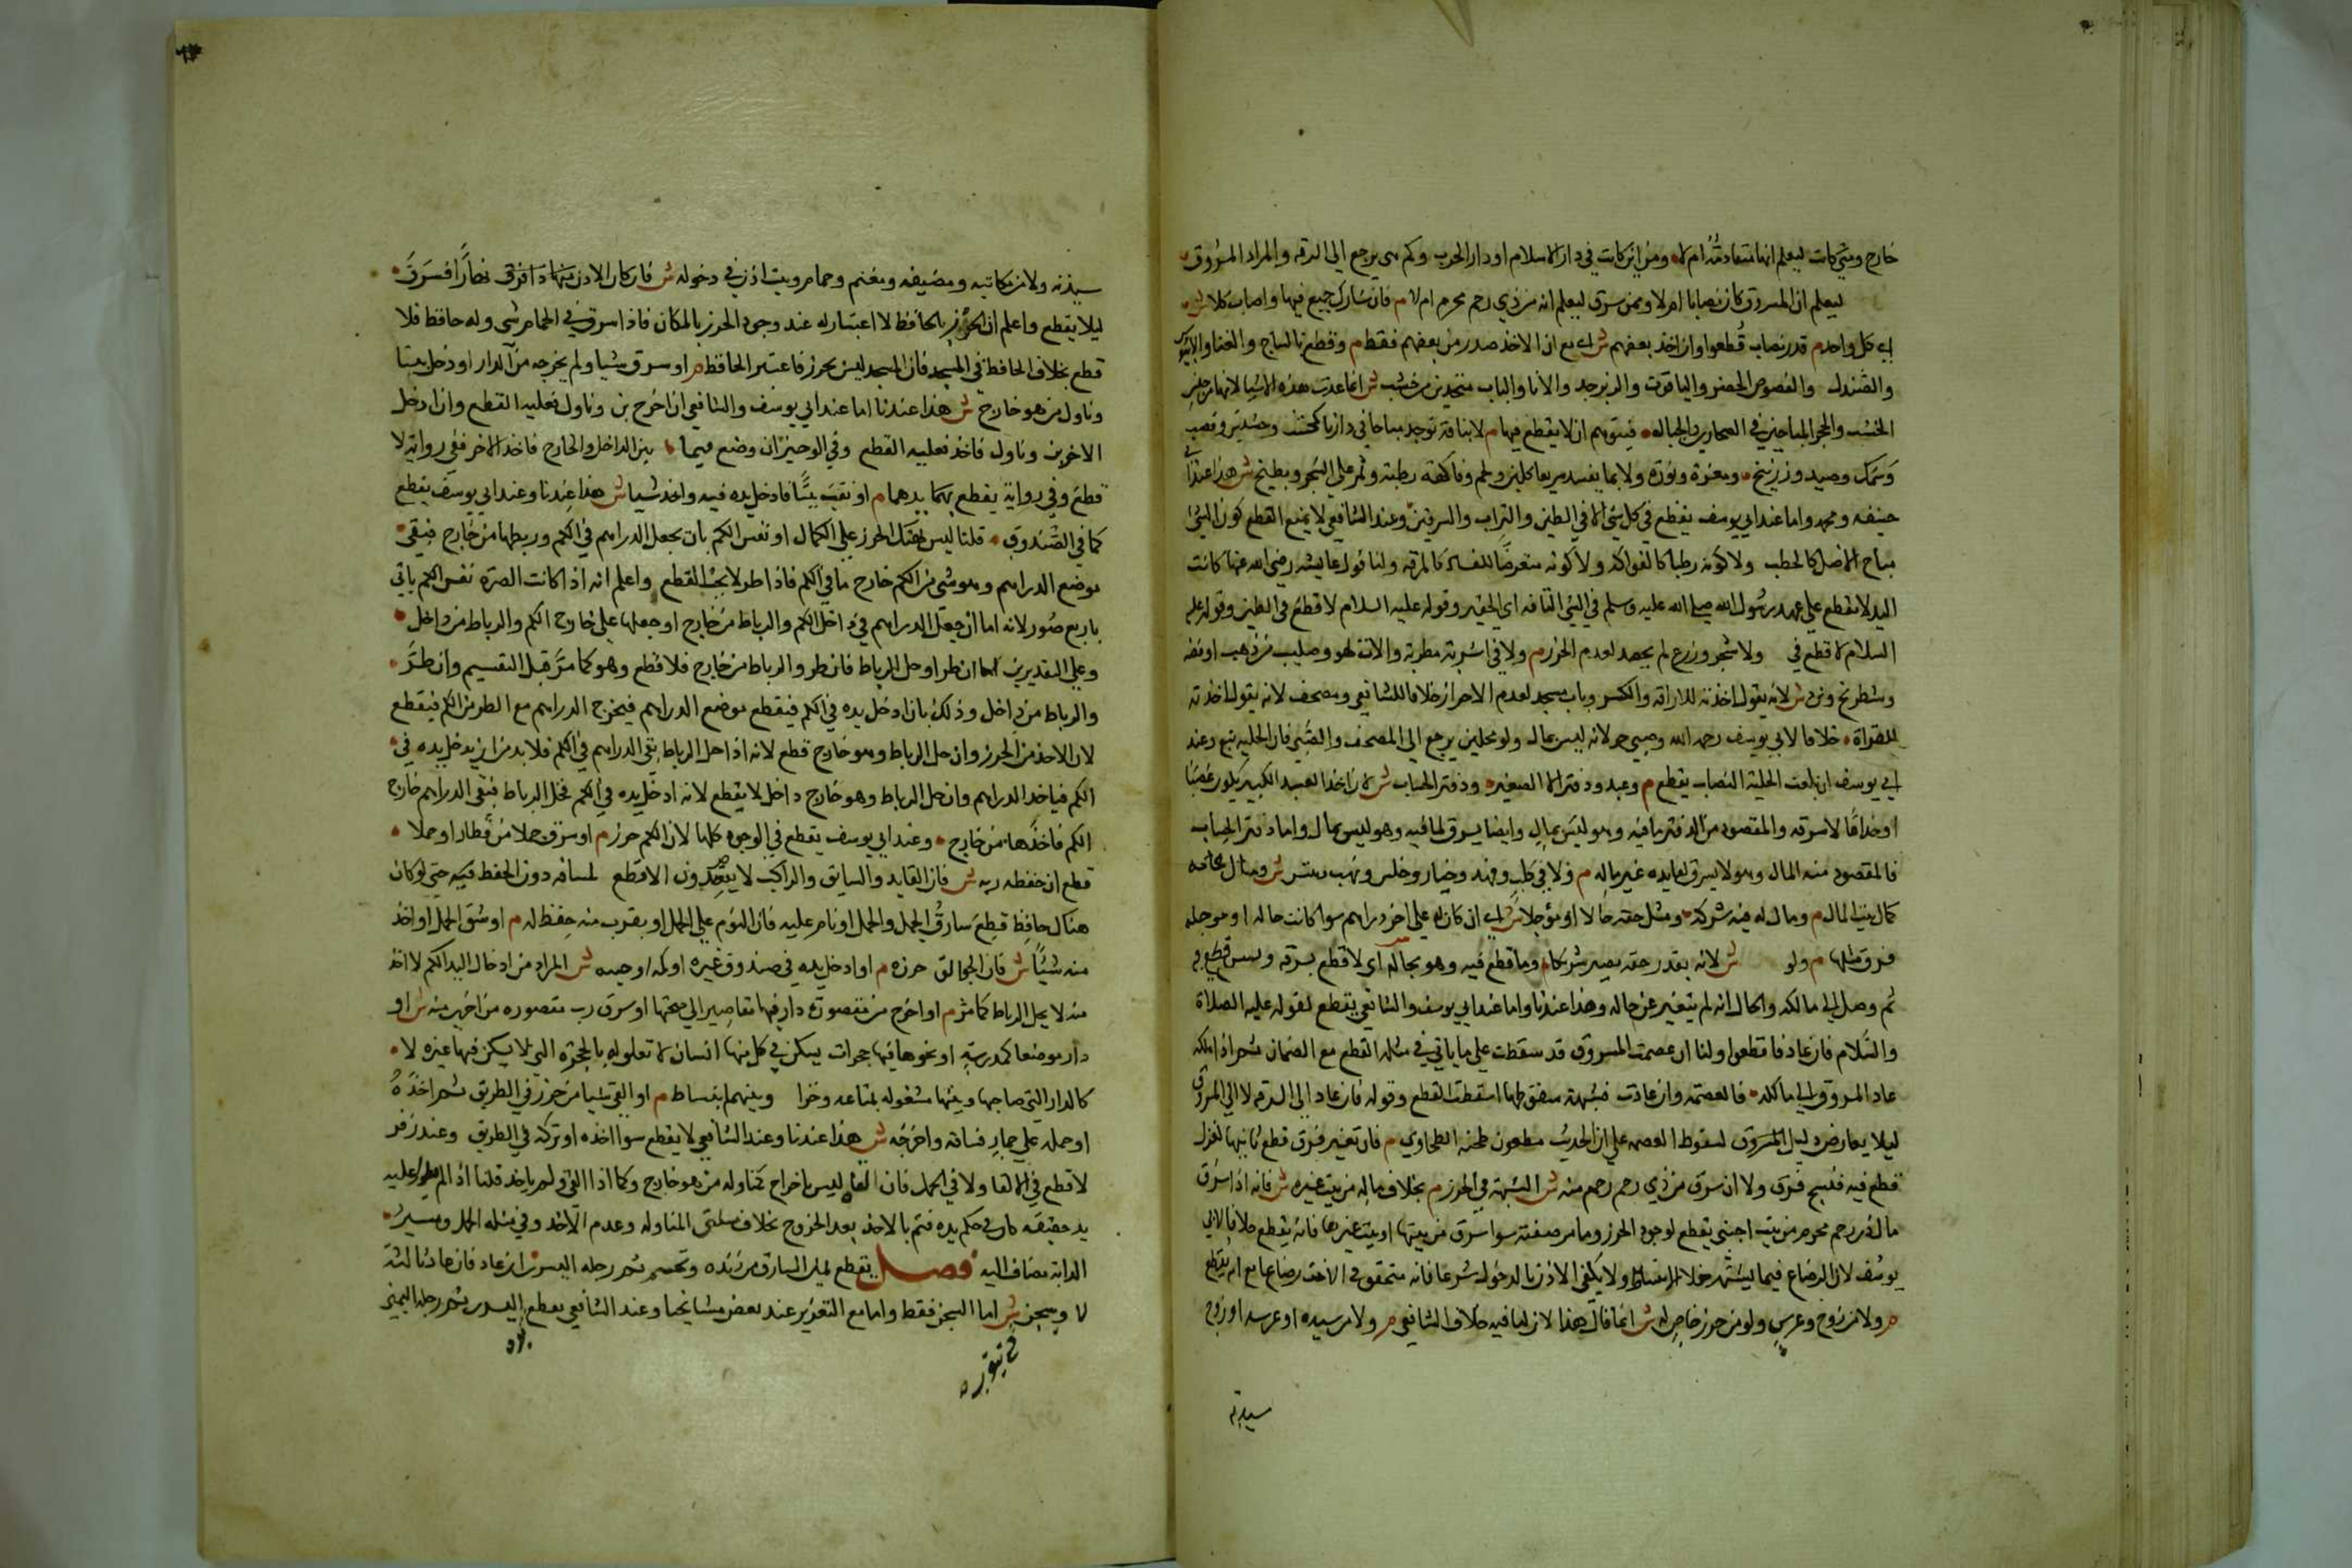 خارج ومتي كانت ليعلم انها متقادمة ام لا ومن اين كانت في دار الاسلام او دار الحرب وكم هي يرجع الي الدرقه والمراد المسروق
ليعلم ان المسروق كان نصابا ام لا وممن سرق ليعلم انه من ذي رحم محرم ام لا م فان شارك جمع فيها واصاب كلا ش
اي كل واحد م قدر نصاب قطعوا وان اخذ بعضهم ش اي مع ان الاخذ صدر من بعضهم فقط م وقطع بالساج والقنا والابنوس
والصندل والفصوص الخضر والياقوت والزبرجد والانا والباب متخذين من خشب ش انما عدت هذه الاشيا لانها من جنس
الخشب والحجر المباحين في الصحاري والجبال فيتوهم ان لا يقطع فيها م لا بتافه توجد مباحا في دارنا كخشب وحشيش وقصب
وسمك وصيد وزرنيخ ومغرة ونورة ولا بما يفسد سريعا كلبن ولحم وفاكهة رطبة وثمر علي الشجر وبطيخ ش هذا عند ابي
حنيفه ومحمد واما عند ابي يوسف يقطع في كل شي الا في الطين والتراب والسرقين وعند الشافعي لا يمنع القطع كون الشي
مباح الاصل كالحطب ولا كونه رطبا كالفواكه ولا كونه متعرضا للفساد كالمرقه ولنا قول عايشه رضي الله عنها كانت
اليد لا تقطع علي عهد رسول الله صلي الله عليه وسلم في الشي التافه اي الحقير وقوله عليه السلام لا قطع في الطير وقوله عليه
السلام لا قطع في ولا شجر وزرع لم يحصد لعدم الحرز م ولا في اشربة مطربة والات لهو وصليب من ذهب او فضه
وشطرنج ونرد ش لانه يقول اخذته للاراقه والكسر وباب مسجد لعدم الاحراز خلافا للشافعي ومصحف لانه يقول اخذته
للقراة خلافا لابي يوسف رحمه الله وصبي حر لانه ليس بمال ولو محليين يرجع الي المصحف والصبي فان الحليه تبع وعند
ابي يوسف ان بلغت الحلية النصاب يقطع م وعبد ودفتر الا الصغير ودفتر الحساب ش لان اخذ العبد الكبير يكون غصبا
او خداعا لا سرقه والمقصود من الدفتر ما فيه وهو ليس بمال وايضا يسرق لما فيه وهو ليس بمال واما دفتر الحساب
فالمقصود منه المال وهو لا يسرق لفايده غير ماله م ولا في كلب وفهد وخيار وخلس ونهب ونبش ش ومال عامه
كمال بيت المال م ومال له فيه شركة ومثل حقه حالا او مؤجلا ش اي ان كان له علي اخر دراهم سوا كانت حاله او موجله
فسرق مثلها م ولو ش لانه بقدر حقه يصير شريكا م وما قطع فيه وهو بحاله اي لا قطع بسرقه وليس قطع فيه
ثم وصل الي مالكه والحال انه لم يتغير عن حاله وهذا عندنا واما عند ابي يوسف والشافعي يقطع لقوله عليه الصلاة
والسلام فان عاد فاقطعوا ولنا ان عصمت المسروق قد سقطت علي ما ياتي في مسئلة القطع مع الضمان ثم اذا ملكه
عاد المسروق الي مالكه فالعصمة وان عادت فشبهة سقوطها اسقطت القطع وقوله فان عاد الي السرقه لا الي المسروق
ليلا يعارض دليل المسروق لسقوط العصمه علي ان الحديث مطعون طعنه الطحاوي م فان تغير فسرق قطع ثانيها لغزل
قطع فيه فنسج فسرق ولا ان سرق من ذي رحم رحم منه ش الشبهة في الحرز م بخلاف ماله من بيت غيره ش فانه اذا سرق
مال ذي رحم محرم من بيت اجنبي يقطع لوجود الحرز وما مرضعته سوا سرق من بيتها او بيت غيرها فانه يقطع خلافا لابي
يوسف لان الرضاع فيما يشتهر خلا الانبساط ولا يكفي الاذن بالدخول شرعا فانه متحقق في الاخت رضاعا مع ام يقطع
م ولا من زوج وعرس ولو من حرز خاص له ش انما قال هذا لان لنا فيه خلاف الشافعي م ولا من سيده او عرسه او زوج
سيدته
سيدته ولا من مكاتبه ومضيفه ومغنم وحمام وبيت اذن في دخوله ش فان كان الاذن نهارا فسرق
ليلا يقطع واعلم ان الحرز بالحافظ لا اعتبار له عند وجود الحرز بالمكان فاذا سرق في الحمام شي وله حافظ فلا
قطع بخلاف الحافظ في المسجد فان المسجد ليس بحرز فاعتبر الحافظ م او سرق شيا ولم يخرجه من الدار او دخل بيتا
وناول من هو خارج ش هذا عندنا اما عند ابي يوسف والشافعي ان اخرج يده وناول فعليه القطع وان ادخل
الاخر يده وناول فاخذ فعليه القطع وفي الوجيز ان وضع فيما بين الداخل والخارج فاخذ الاخر ففي رواية لا
قطع وفي رواية يقطع بهما يدهما م او نقب بيتا فادخل يده فيه واخذ شيا ش هذا عندنا وعند ابي يوسف يقطع
كما في الصندوق قلنا ليس هتك الحرز علي الكمال او نفس الكم بان يجعل الدراهم في الكم وربطها من خارج فبقي
موضع الدراهم وهو شي من الكم خارج ما في الكم فاذا طر لا يجب القطع واعلم انه اذا كانت الصرة نفس الكم ياتي
باربع صور لانه اما ان جعل الدراهم في داخل الكم والرباط من خارج او جعلها علي خارج الكم والرباط من داخل
وعلي التقديرين اما ان طر او حل الرباط فان طر والرباط من خارج فلا قطع وهو كما مر قبل التقسيم وان طر
والرباط من داخل وذلك بان ادخل يده في الكم فيقطع موضع الدراهم فيخرج الدراهم مع الطر من الكم فيقطع
لان الاخذ من الحرز وان حل الرباط وهو خارج قطع لانه اذا حل الرباط بقي الدراهم في الكم فلا بد من ان يدخل يده في
الكم فياخذ الدراهم وان حل الرباط وهو خارج داخل لا يقطع لانه ادخل يده في الكم فحل الرباط فبقي الدراهم خارج
الكم فاخذها من خارج وعند ابي يوسف يقطع في الوجوه كلها لان الكم حرز م او سرق جملا من قطار او حملا
قطع ان حفظه ربه ش فان القايد والسايق والراكب لا يقصدون الا قطع لمسافه دون الحفظ فيه حتي لو كان
هناك حافظ قطع سارق الجمل والحمل او نام عليه فان النوم علي الحمل او بقرب منه حفظ له م او شق الحمل او اخذ
منه شيئا ش فان الجوالق حرزه م او ادخل يده في صندوق غيره او كمه او جيبه ش المراد من ادخال اليد الكم لا اخذ
منه لا يحل الرباط كما مر م او اخرج من مقصورة دار فيها مقاصير الي صحنها او سرق رب مقصوره من اخري منه ش او
دار موضعا كمدرسة او نحوها فيها حجرات يسكن في كل منها انسان لا تعلق له بالحجره التي لا يسكن فيها غيره لا
كالدار التي صاحبها وبيتها مشغوله بمتاعه وخزا وبينهم انبساط م او القي شيا من حرز في الطريق ثم اخذه
او حمله علي حمار فساقه واخرجه ش هذا عندنا وعند الشافعي لا يقطع سوا اخذه او تركه في الطريق وعند زفر
لا قطع في الالقا ولا في الحمل فان القاه ليس باخراج كمناوله من هو خارج وكما اذا القي ولم ياخذ قلنا اذا لم عليه
يد حقيقه كان في حكم يده فتم بالاخذ بعد الخروج بخلاف مسئلتي المناوله وعدم الاخذ وفي مسئله الحمل وسير
الدابة مضاف اليه فصل يقطع يمين السارق من زنده وتحسم ثم رجله اليسري ان عاد فان عاد ثالثة
لا ويسجن ش اما السجن فقط واما مع التعزير عند بعض مشايخنا وعند الشافعي يقطع اليسري ثم رجله اليمني